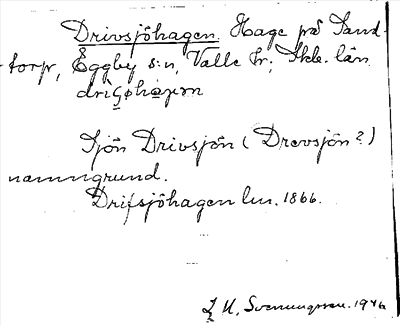 Drivsjöhagen. Hage på Sand-
torp, Eggby s:n, Valle hr; Skbl. län.
Sjön Drivsjön (Drevsjön?)
namngrund.
Drifsjöhagen lm. 1866.
Svenungsson. 1946